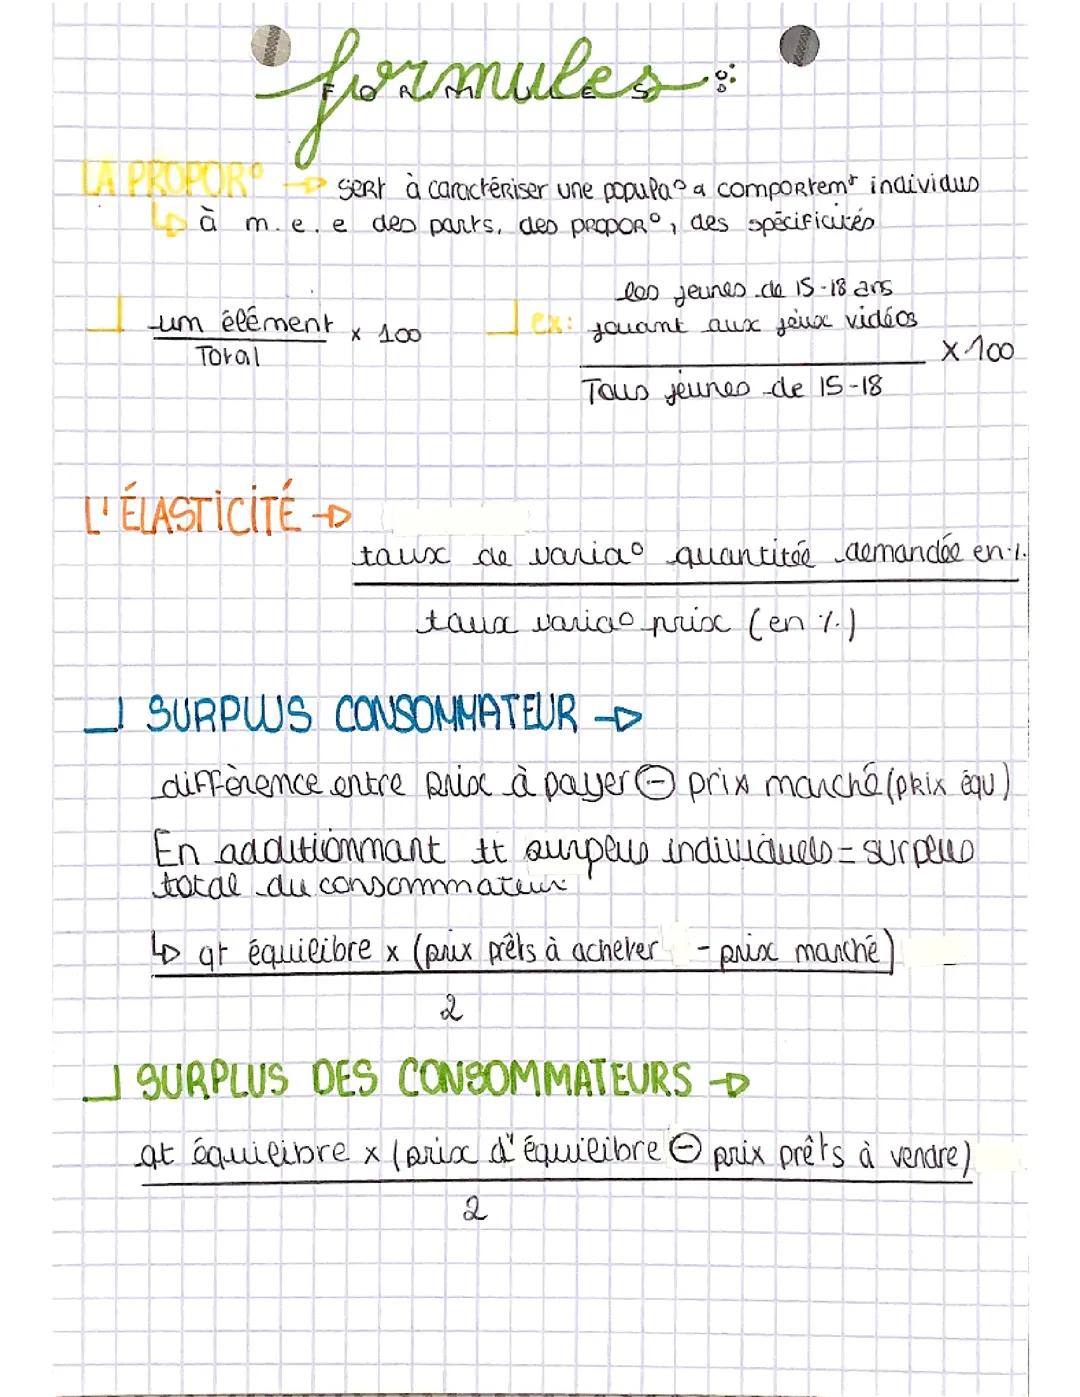 formules :
FORMULES :
LA PROPOR° → sert à caractériser une popula° a comportemt individus
↳ à m.e.e des parts, des propor°, des spécificités
un élément / Total x 100
ex: les jeunes de 15-18 ans
jouant aux jeux vidéos
x 100
Tous jeunes de 15-18
L'ÉLASTICITÉ →
taux de varia° quantitée demandée en %
taux varia° prix (en %)
SURPLUS CONSOMMATEUR →
différence entre prix à payer ⊖ prix marché (prix équ)
En additionnant tt surplus individuels = surplus
total du consommateur
↳ qt équilibre x (prix prêts à acheter - prix marché)
2
SURPLUS DES CONSOMMATEURS →
qt équilibre x (prix d'équilibre ⊖ prix prêts à vendre)
2